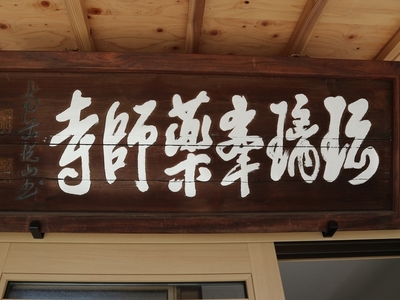 瑠璃峯薬師寺